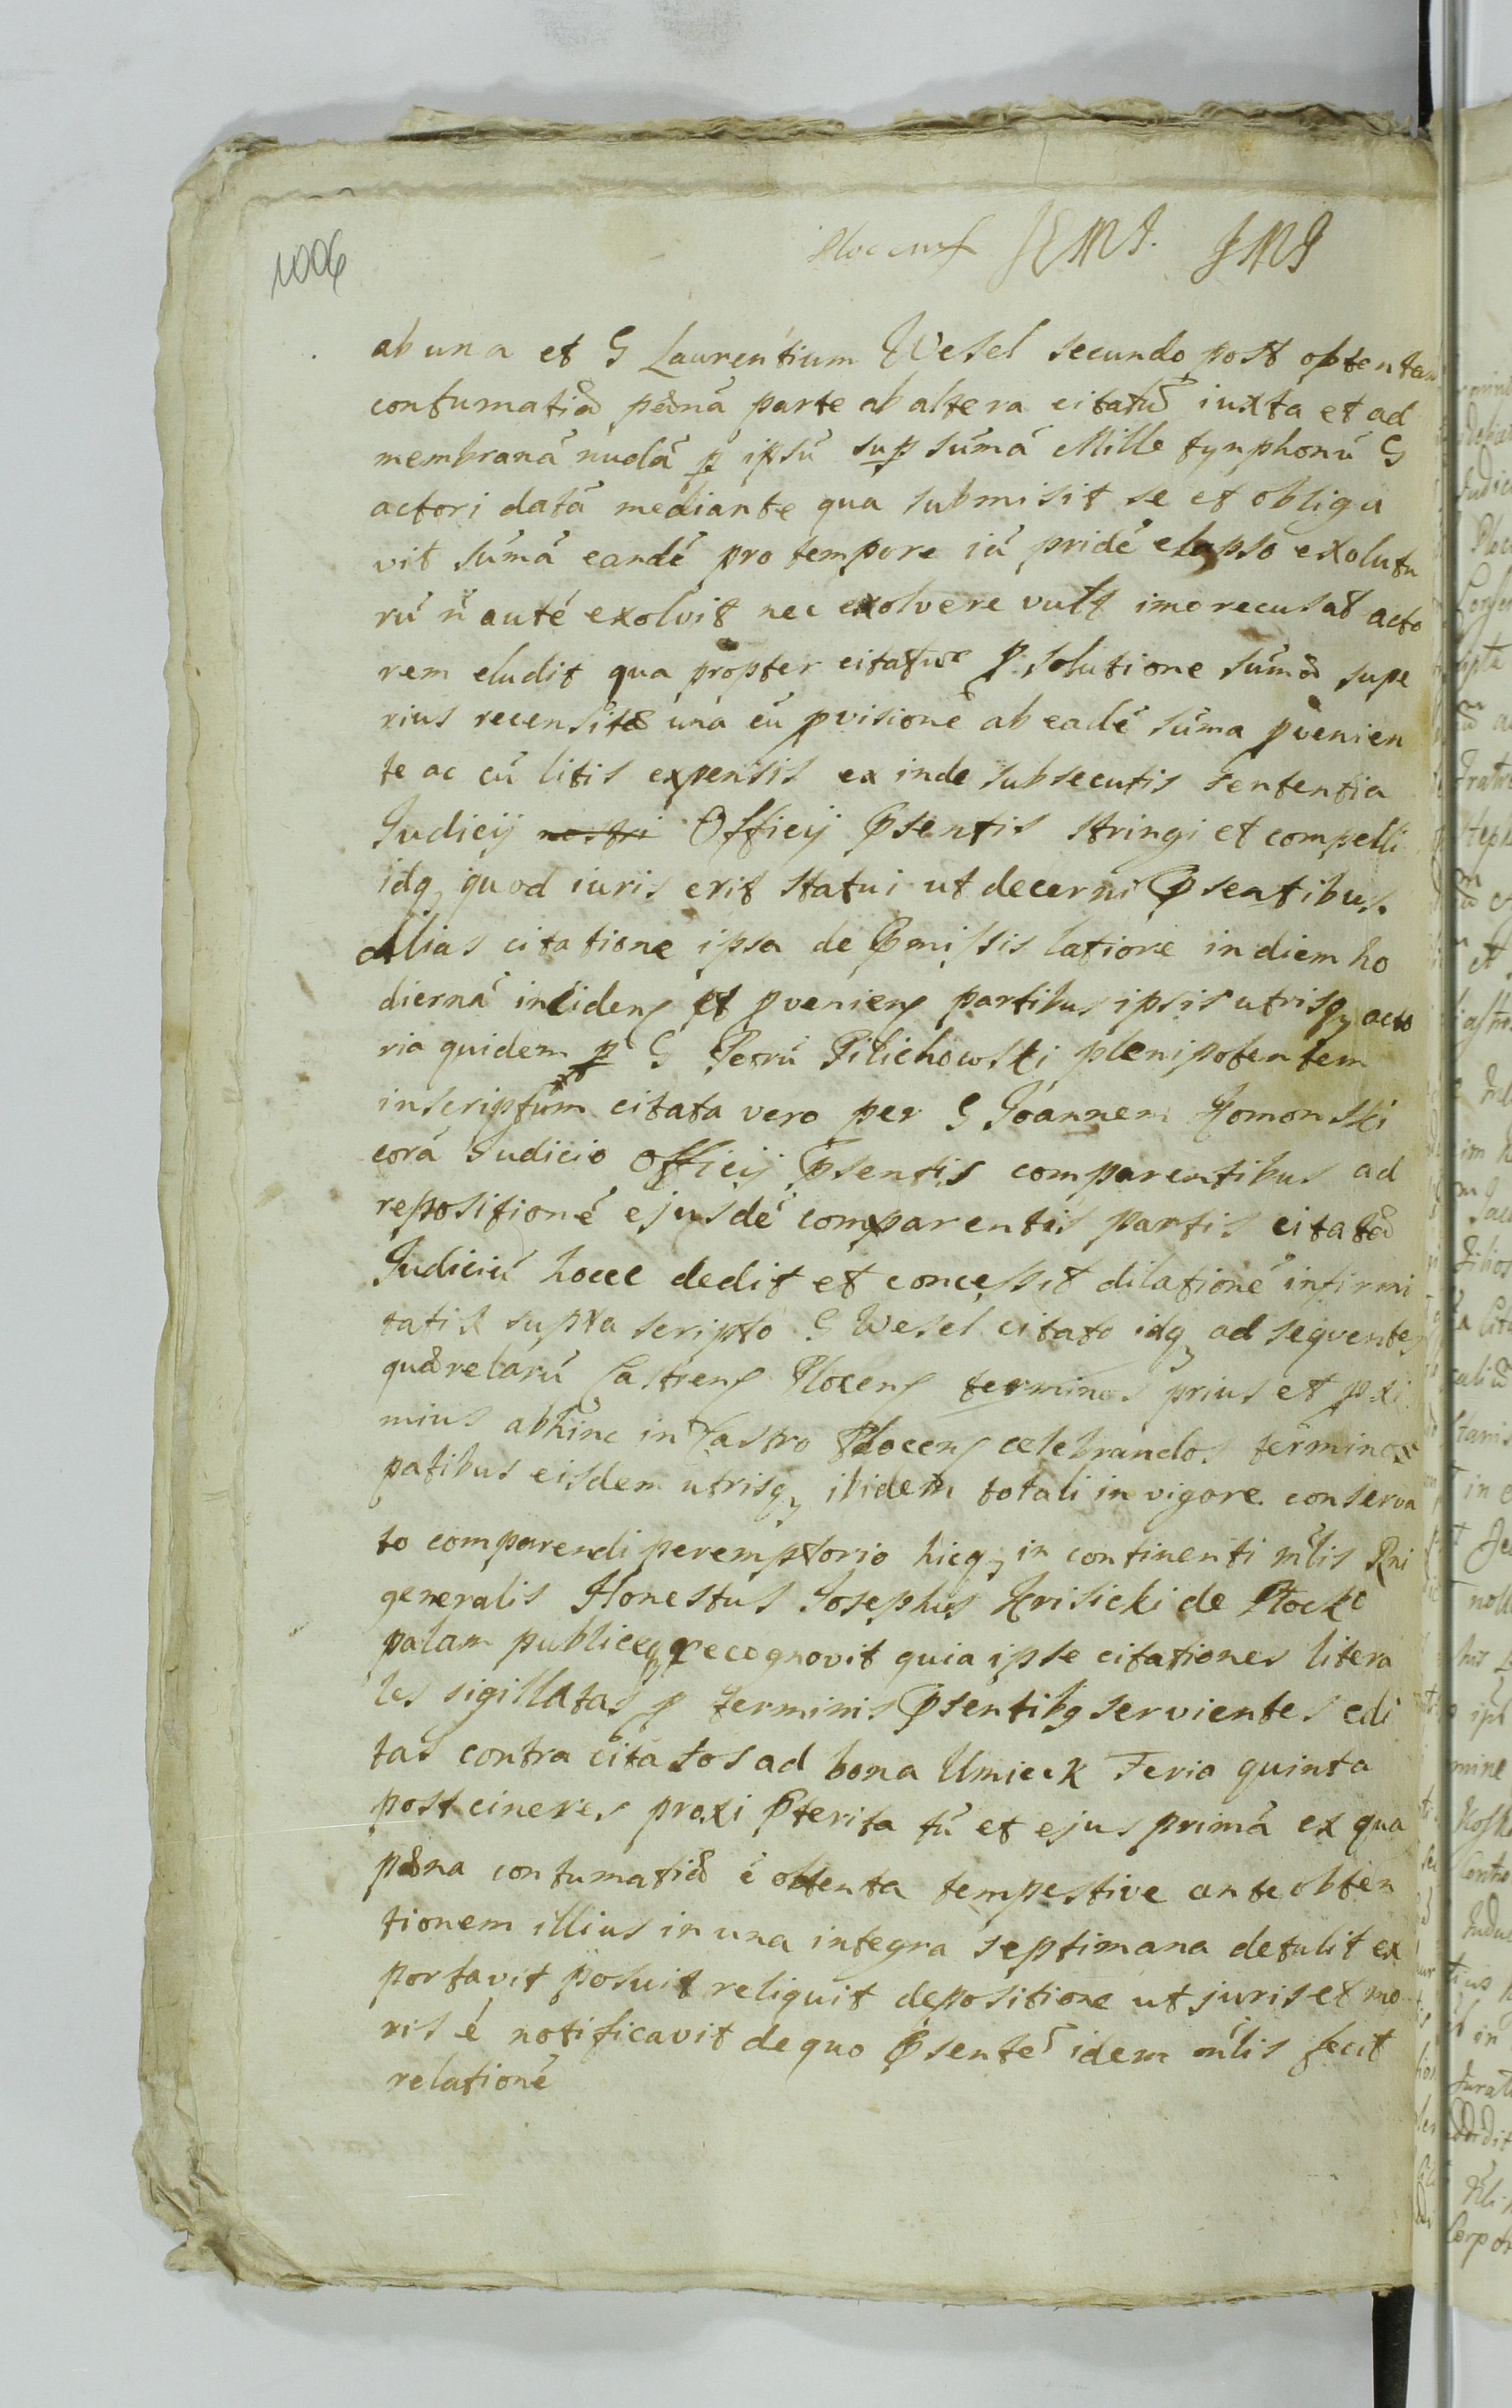 1006
Plocens
ab una et G Laurentium Wesel secundo post obtentam
contumatiæ pænã parte ab altera citatũ iuxta et ad
membranã nudã p ipsũ sup sũmã Mille tynphonũ G
actori datã mediante qua submisit se et obliga
vit sũmã eandẽ pro tempore iã pridẽ elapso exolutu
rũ ñ autẽ exolvit nec exolvere vult imo recusat acto
rem eludit qua propter citatur p solutione sũmæ supe
rius recensitæ unà cũ pvisionẽ ab eadẽ sũma pvenien
te ac cũ litis expensis ex inde subsecutis sententia
Judicij nostri Officij Psentis stringi et compelli
idq, quod iuris erit statui ut decerni Psentibus.
Alias citatione ipsa de Pmissis latiore in diem ho
diernã incidens et pveniens partibus ipsis utrisq, acto
ria quidem p G Petrũ Pilichowski plenipotentem
inscriptum citata vero per G Joannem Homonski
corã Judicio Officij Psentis comparentibus ad
repositionẽ ejusdẽ comparentis partis citatæ
Judiciũ hocce dedit et concessit dilationẽ infirmi
tatis supra scripto G Wesel citato idq, ad sequentes
quærelarũ Castrens Plocens terminos prius et pxi
mius abhinc in Castro Plocens celebrandos terminos
patibus eisdem utrisq, ibidem totali in vigore conserva
to comparendi peremptorio hicq, in continenti mlis Rni
generalis Honestus Josephus Krisicki de Plocko
palam publiceq, recognovit quia ipse citationes litera
les sigillatas p terminis Psentibq servientes edi
tas contra citatos ad bona Umieck Feria quinta
post cineres proxi Pterita tũ et ejus primã ex qua
pæna contumatiæ ẽ obtenta tempestive ante obten
tionem illius in una integra septimana detulit ex
portavit posuit reliquit depositione ut juris et mo
ris ẽ notificavit de quo Psentẽ idem mlis fecit
relationẽ